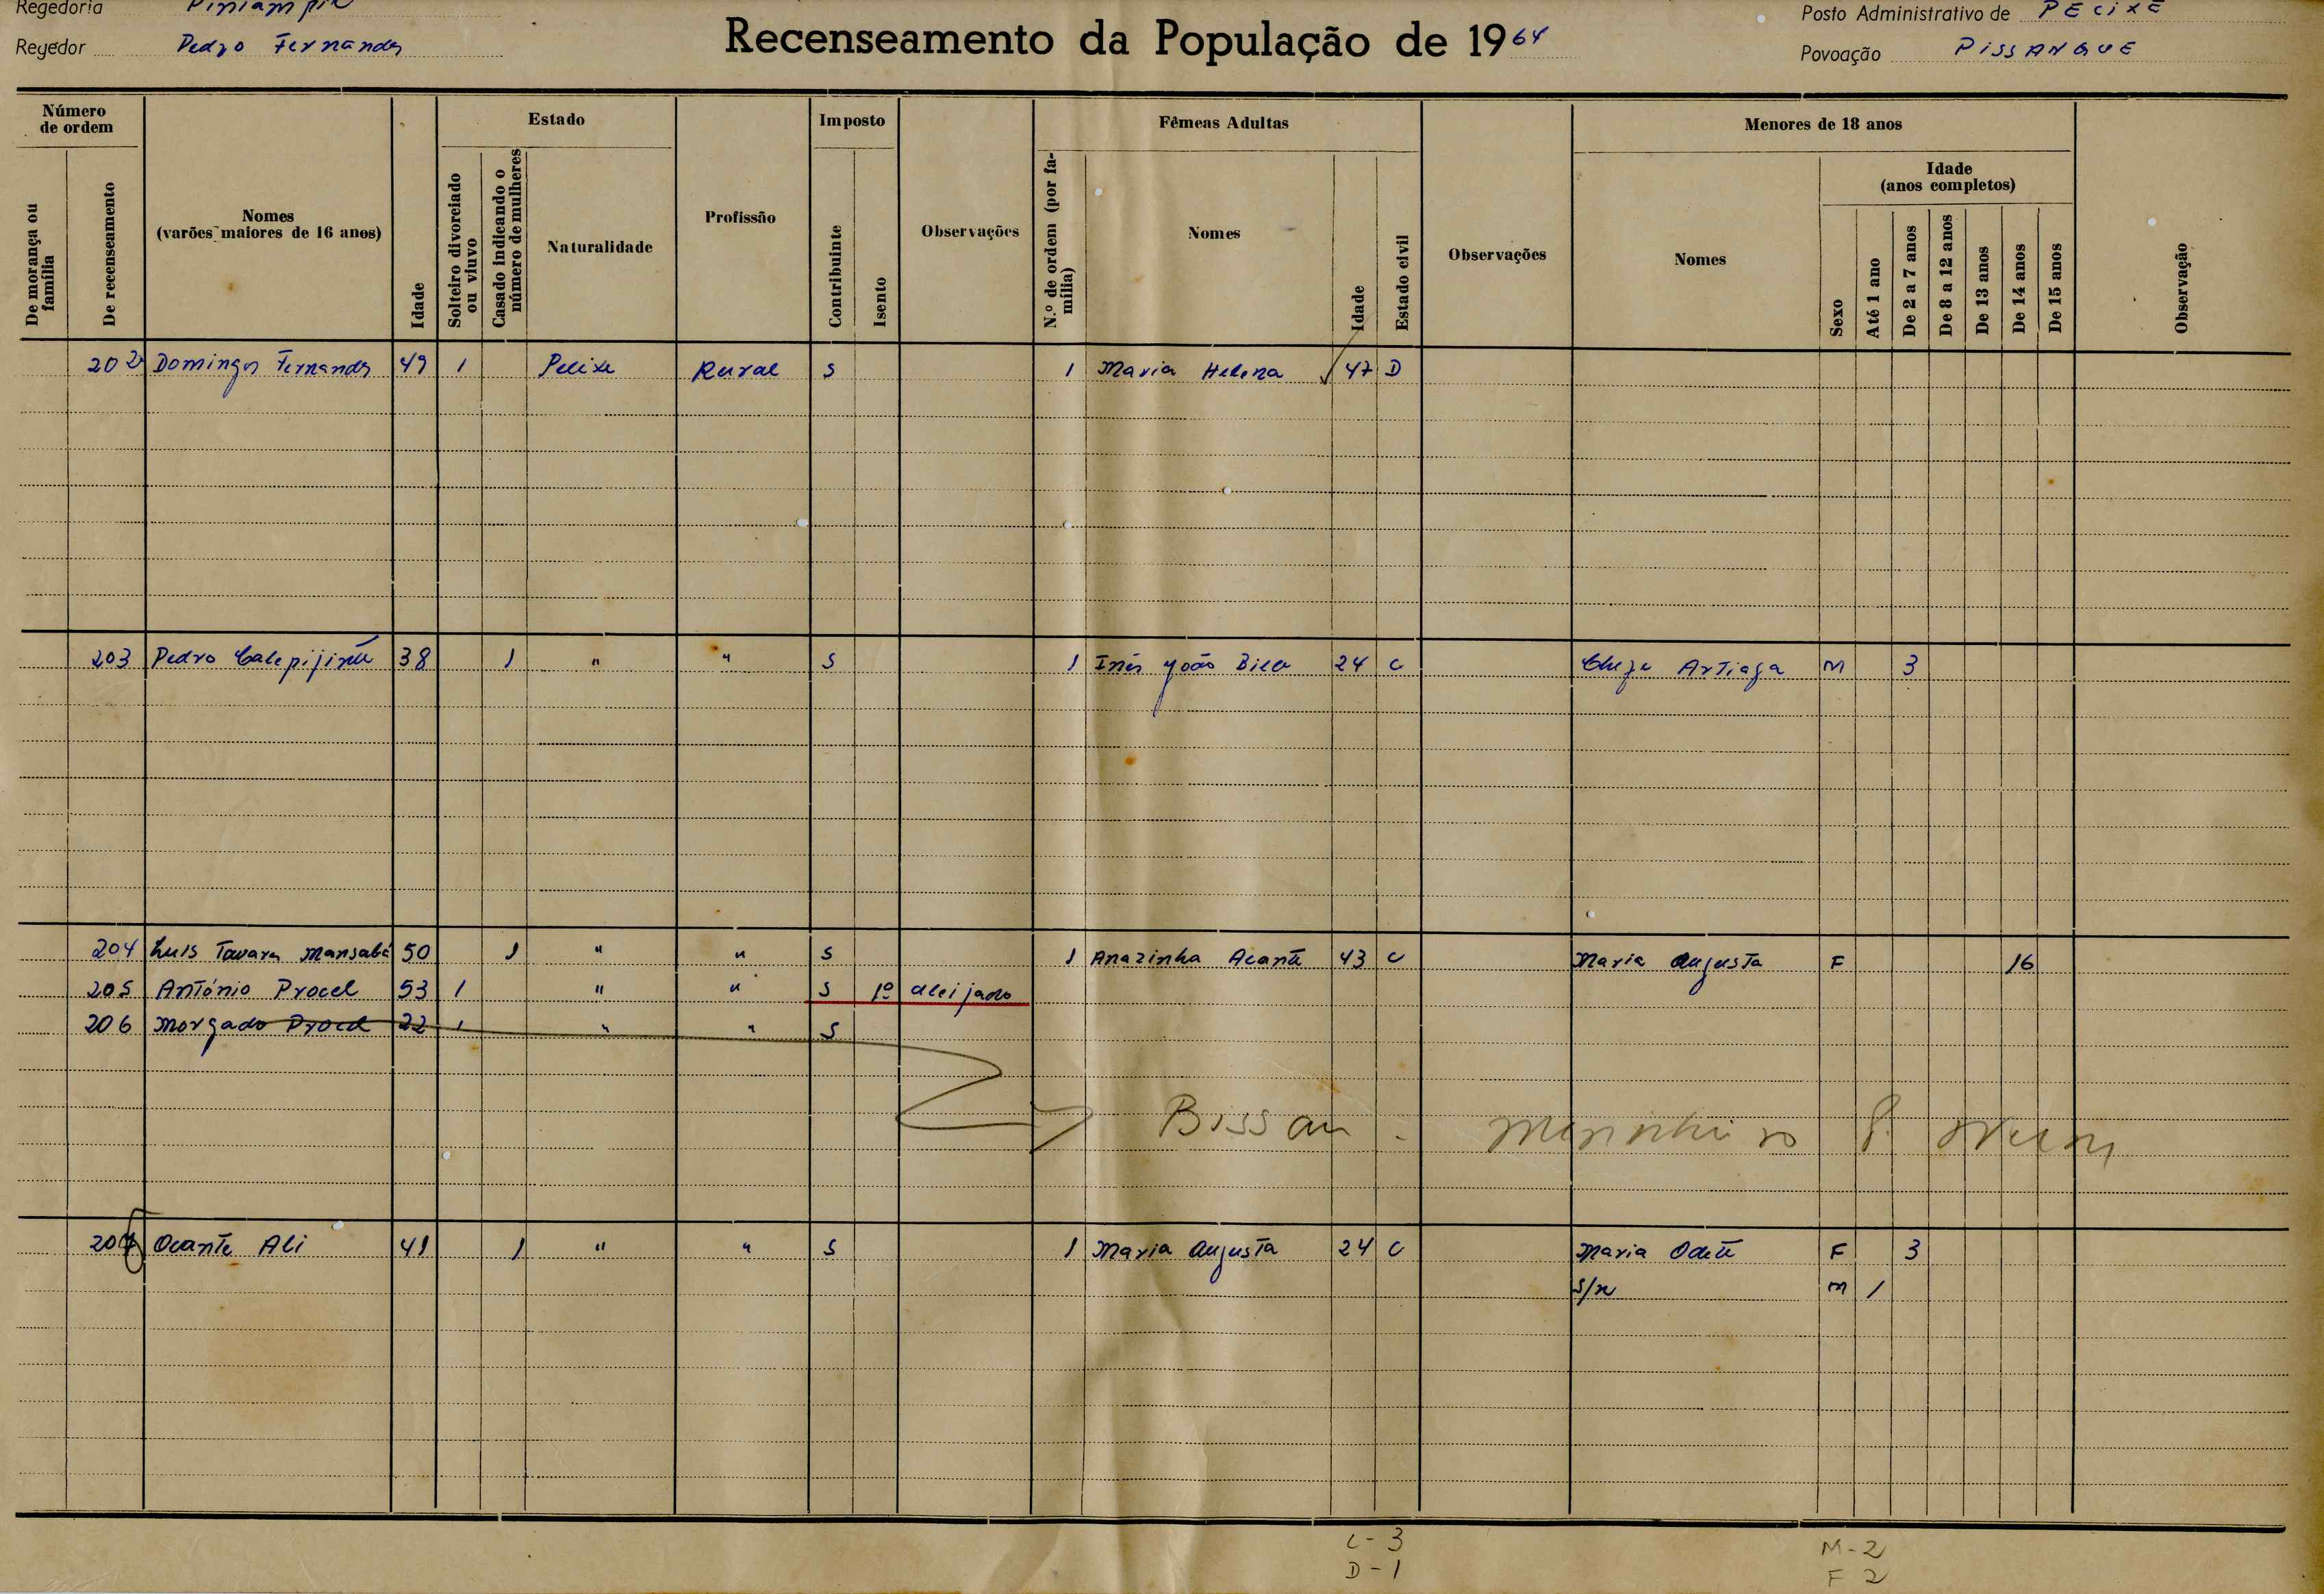 Regedoria
Regedor Pedro Fernandes
Recenseamento da População de 1964
Posto Administrativo de PECIXE
Povoação PISSANGUE
Número de ordem
De morança ou família
De recenseamento
Nomes (varões maiores de 16 anos)
Idade
Estado
Solteiro divorciado ou viuvo
Casado indicando o número de mulheres
Naturalidade
Profissão
Imposto
Contribuinte
Isento
Observações
Fêmeas Adultas
N.º de ordem (por família)
Nomes
Idade
Estado civil
Observações
Menores de 18 anos
Nomes
Idade (anos completos)
Sexo
Até 1 ano
De 2 a 7 anos
De 8 a 12 anos
De 13 anos
De 14 anos
De 15 anos
Observação
202 Domingos Fernandes 49 1 Pecixe Rural S 1 Maria Helena 47 D
203 Pedro 38 1 " " S 1 Inês João 24 C Artiaga M 3
204 Luis Tavares Mansabá 50 1 " " S 1 Anazinha 43 C Maria Augusta F 16
205 António Procel 53 1 " " S 1º aleijado
206 Morgado Procel 22 1 " " S
Bissau - Marinheiro P.
207 Ocante Ali 41 1 " " S 1 Maria Augusta 24 C Maria Odete F 3
S/n M 1
C - 3
D - 1
M - 2
F 2